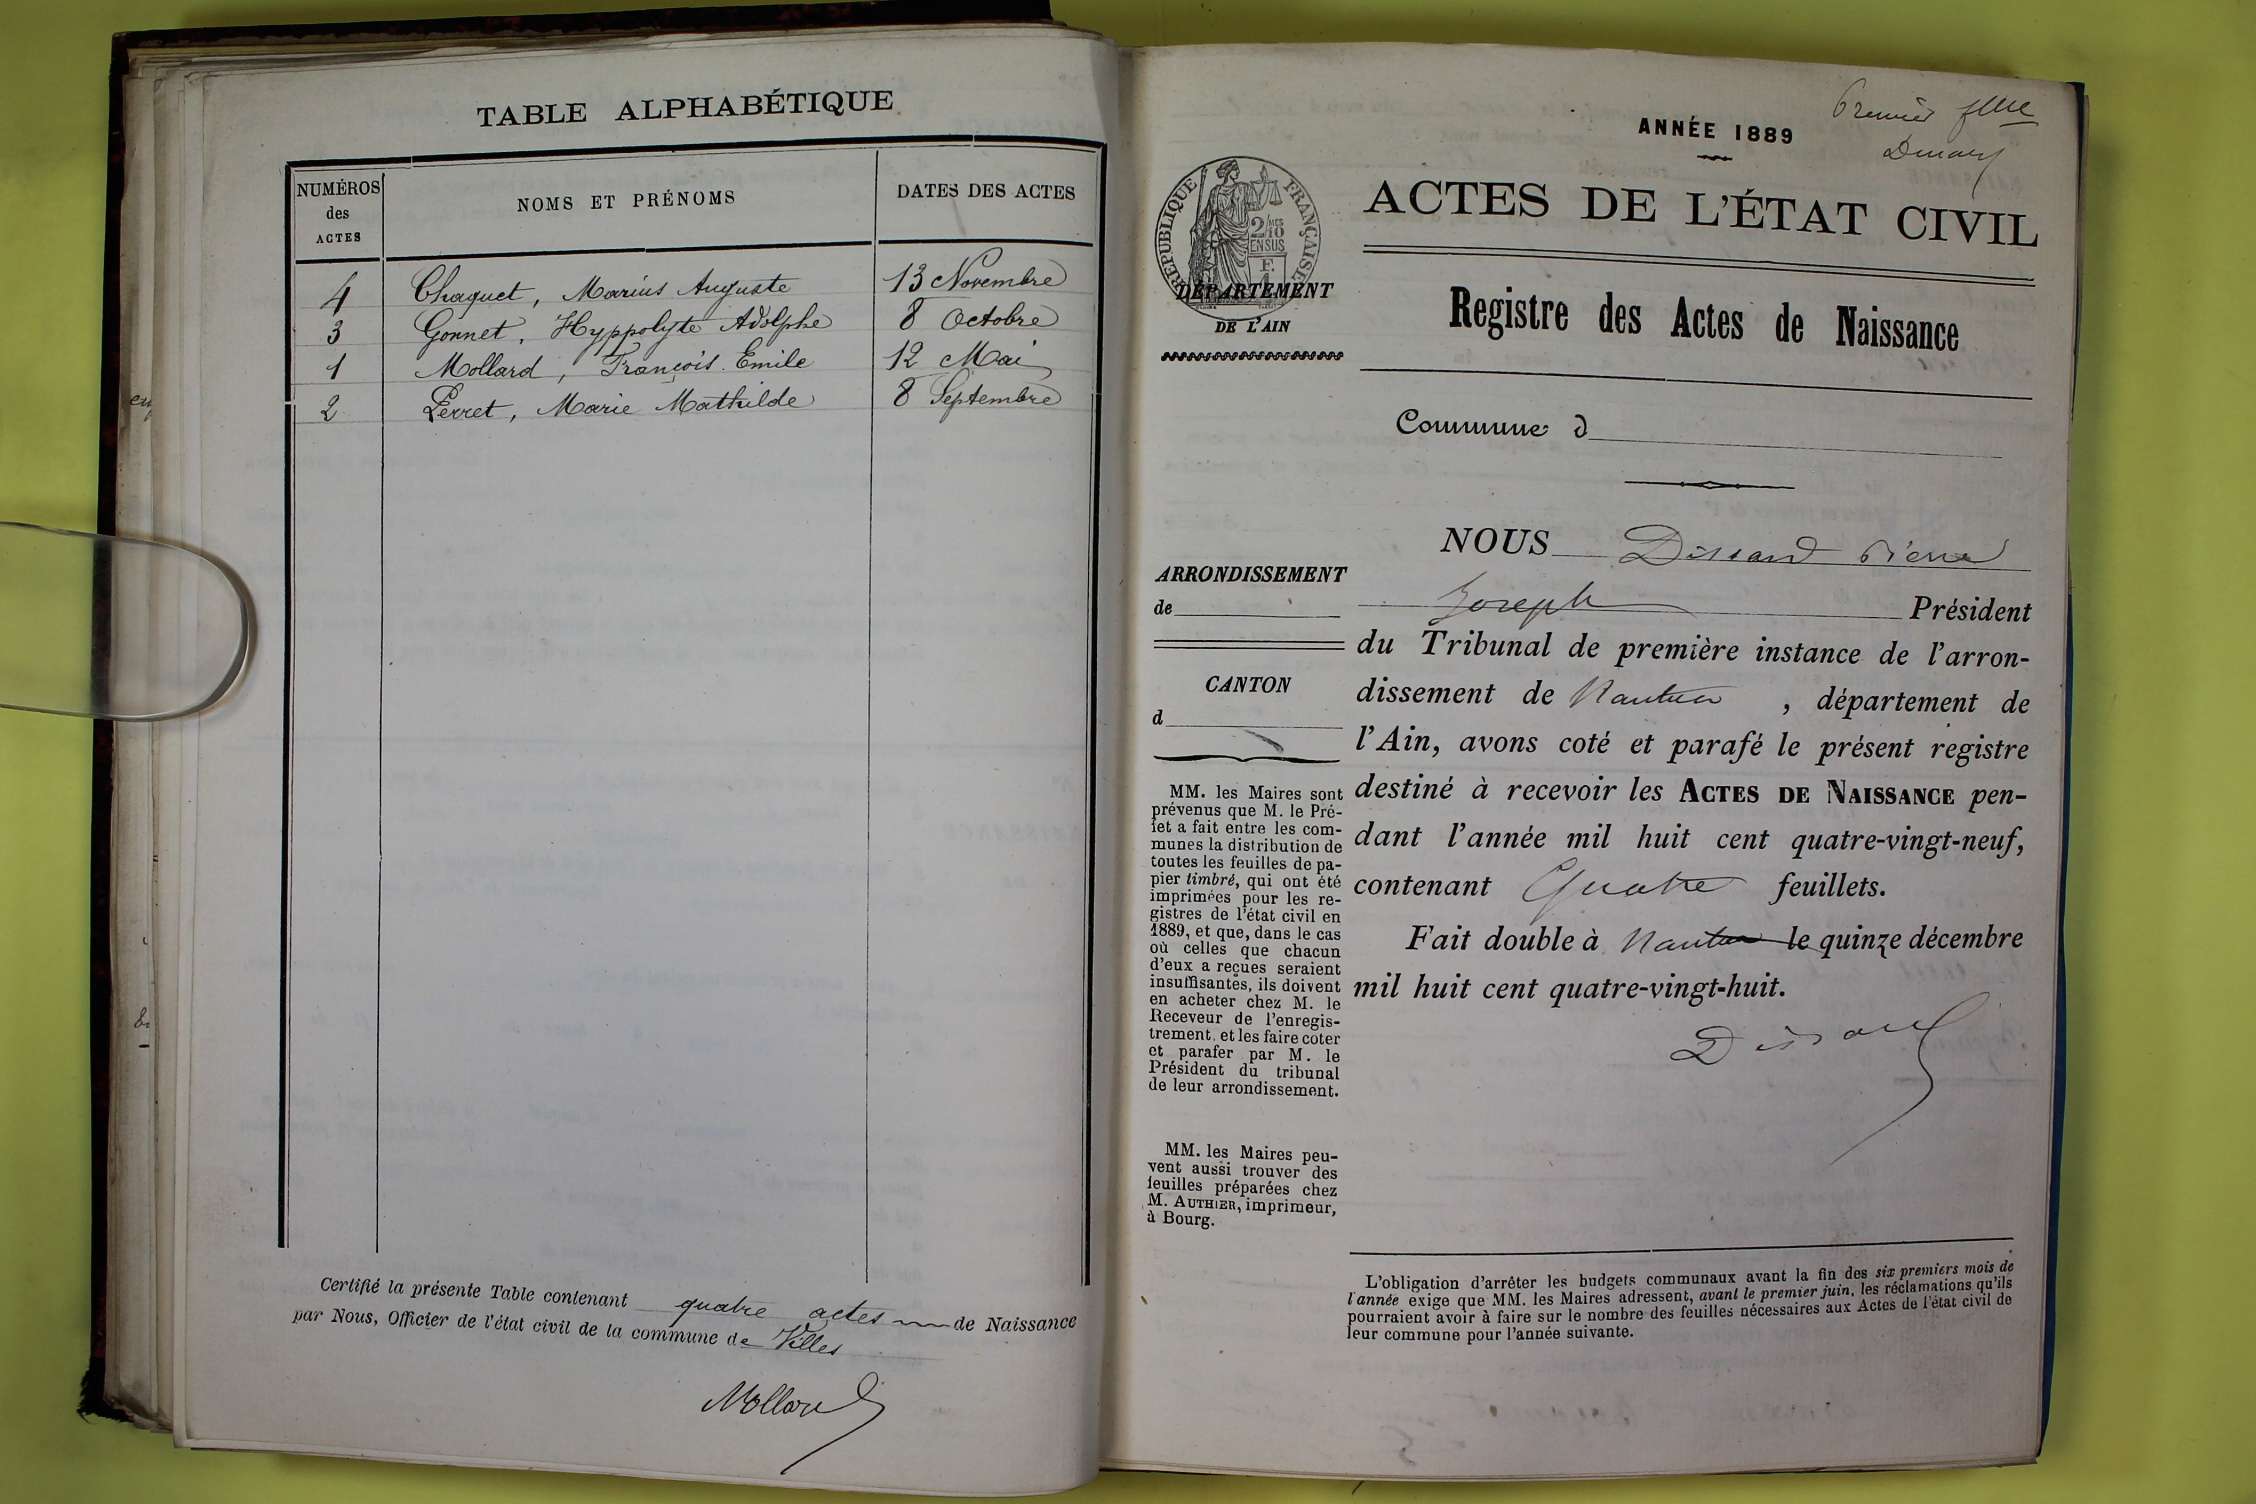 TABLE ALPHABÉTIQUE
NUMÉROS des ACTES
NOMS ET PRÉNOMS
DATES DES ACTES
4 Chaquet, Marius Auguste 13 Novembre
3 Gonnet, Hyppolyte Adolphe 8 Octobre
1 Mollard, François Emile 12 Mai
2 Perret, Marie Mathilde 8 Septembre
Certifié la présente Table contenant quatre actes de Naissance
par Nous, Officier de l'état civil de la commune de Villes
Mollard
Premier flle
Dissard
ANNÉE 1889
ACTES DE L'ÉTAT CIVIL
RÉPUBLIQUE FRANÇAISE
2/10 MES
EN SUS
F.
1
DÉPARTEMENT
DE L'AIN
Registre des Actes de Naissance
Commune d
ARRONDISSEMENT
de
CANTON
d
MM. les Maires sont
prévenus que M. le Pré-
fet a fait entre les com-
munes la distribution de
toutes les feuilles de pa-
pier timbré, qui ont été
imprimées pour les re-
gistres de l'état civil en
1889, et que, dans le cas
où celles que chacun
d'eux a reçues seraient
insuffisantes, ils doivent
en acheter chez M. le
Receveur de l'enregis-
trement, et les faire coter
et parafer par M. le
Président du tribunal
de leur arrondissement.
MM. les Maires peu-
vent aussi trouver des
feuilles préparées chez
M. AUTHIER, imprimeur,
à Bourg.
NOUS Dissard Pierre
Joseph Président
du Tribunal de première instance de l'arron-
dissement de Nantua, département de
l'Ain, avons coté et parafé le présent registre
destiné à recevoir les ACTES DE NAISSANCE pen-
dant l'année mil huit cent quatre-vingt-neuf,
contenant Quatre feuillets.
Fait double à Nantua le quinze décembre
mil huit cent quatre-vingt-huit.
Dissard
L'obligation d'arrêter les budgets communaux avant la fin des six premiers mois de
l'année exige que MM. les Maires adressent, avant le premier juin, les réclamations qu'ils
pourraient avoir à faire sur le nombre des feuilles nécessaires aux Actes de l'état civil de
leur commune pour l'année suivante.